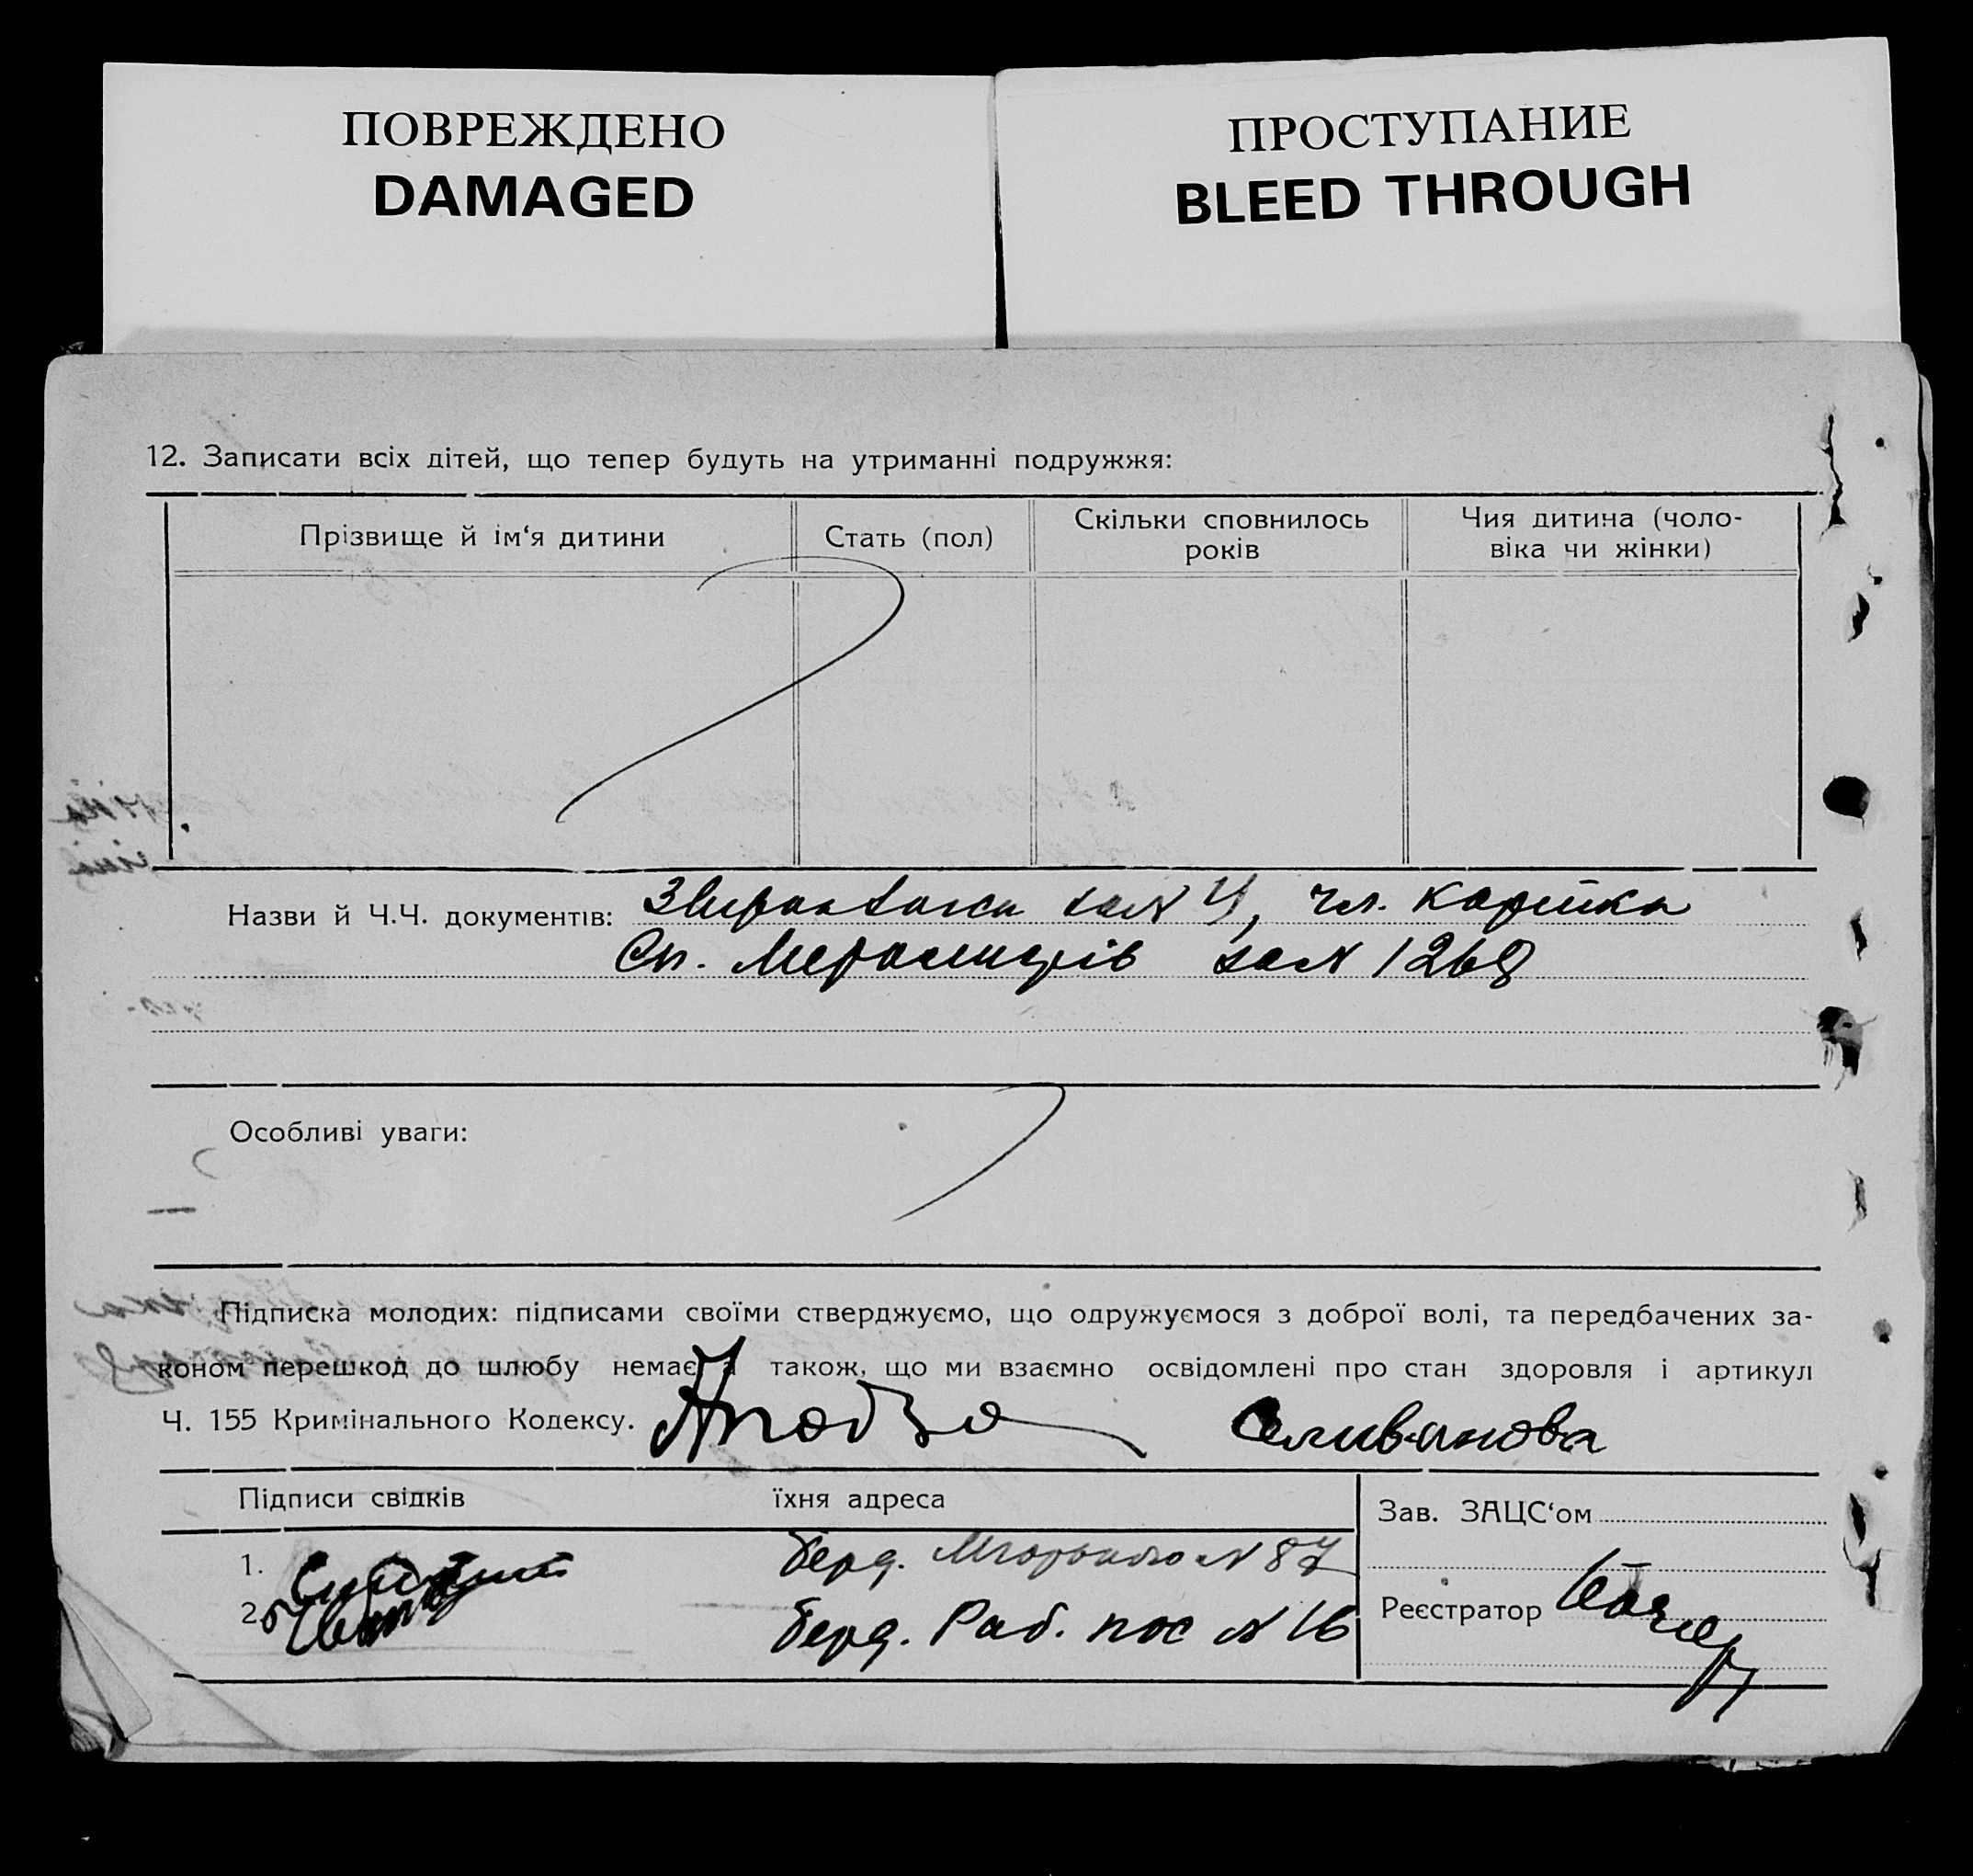 ПОВРЕЖДЕНО
DAMAGED
ПРОСТУПАНИЕ
BLEED THROUGH
12. Записати всіх дітей, що тепер будуть на утриманні подружжя:
Прізвище й ім‘я дитини
Стать (пол)
Скільки сповнилось
років
Чия дитина (чоло-
віка чи жінки)
Назви й Ч.Ч. документів: за № 4, чл. картка
Сп. за № 1268
Особливі уваги:
Підписка молодих: підписами своїми стверджуємо, що одружуємося з доброї волі, та передбачених за-
коном перешкод до шлюбу немає, а також, що ми взаємно освідомлені про стан здоровля і артикул
Ч. 155 Кримінального Кодексу. Селиванова
Підписи свідків
їхня адреса
Зав. ЗАЦС‘ом
1. Берд. № 87
2. Берд. Раб. пос № 16
Реєстратор